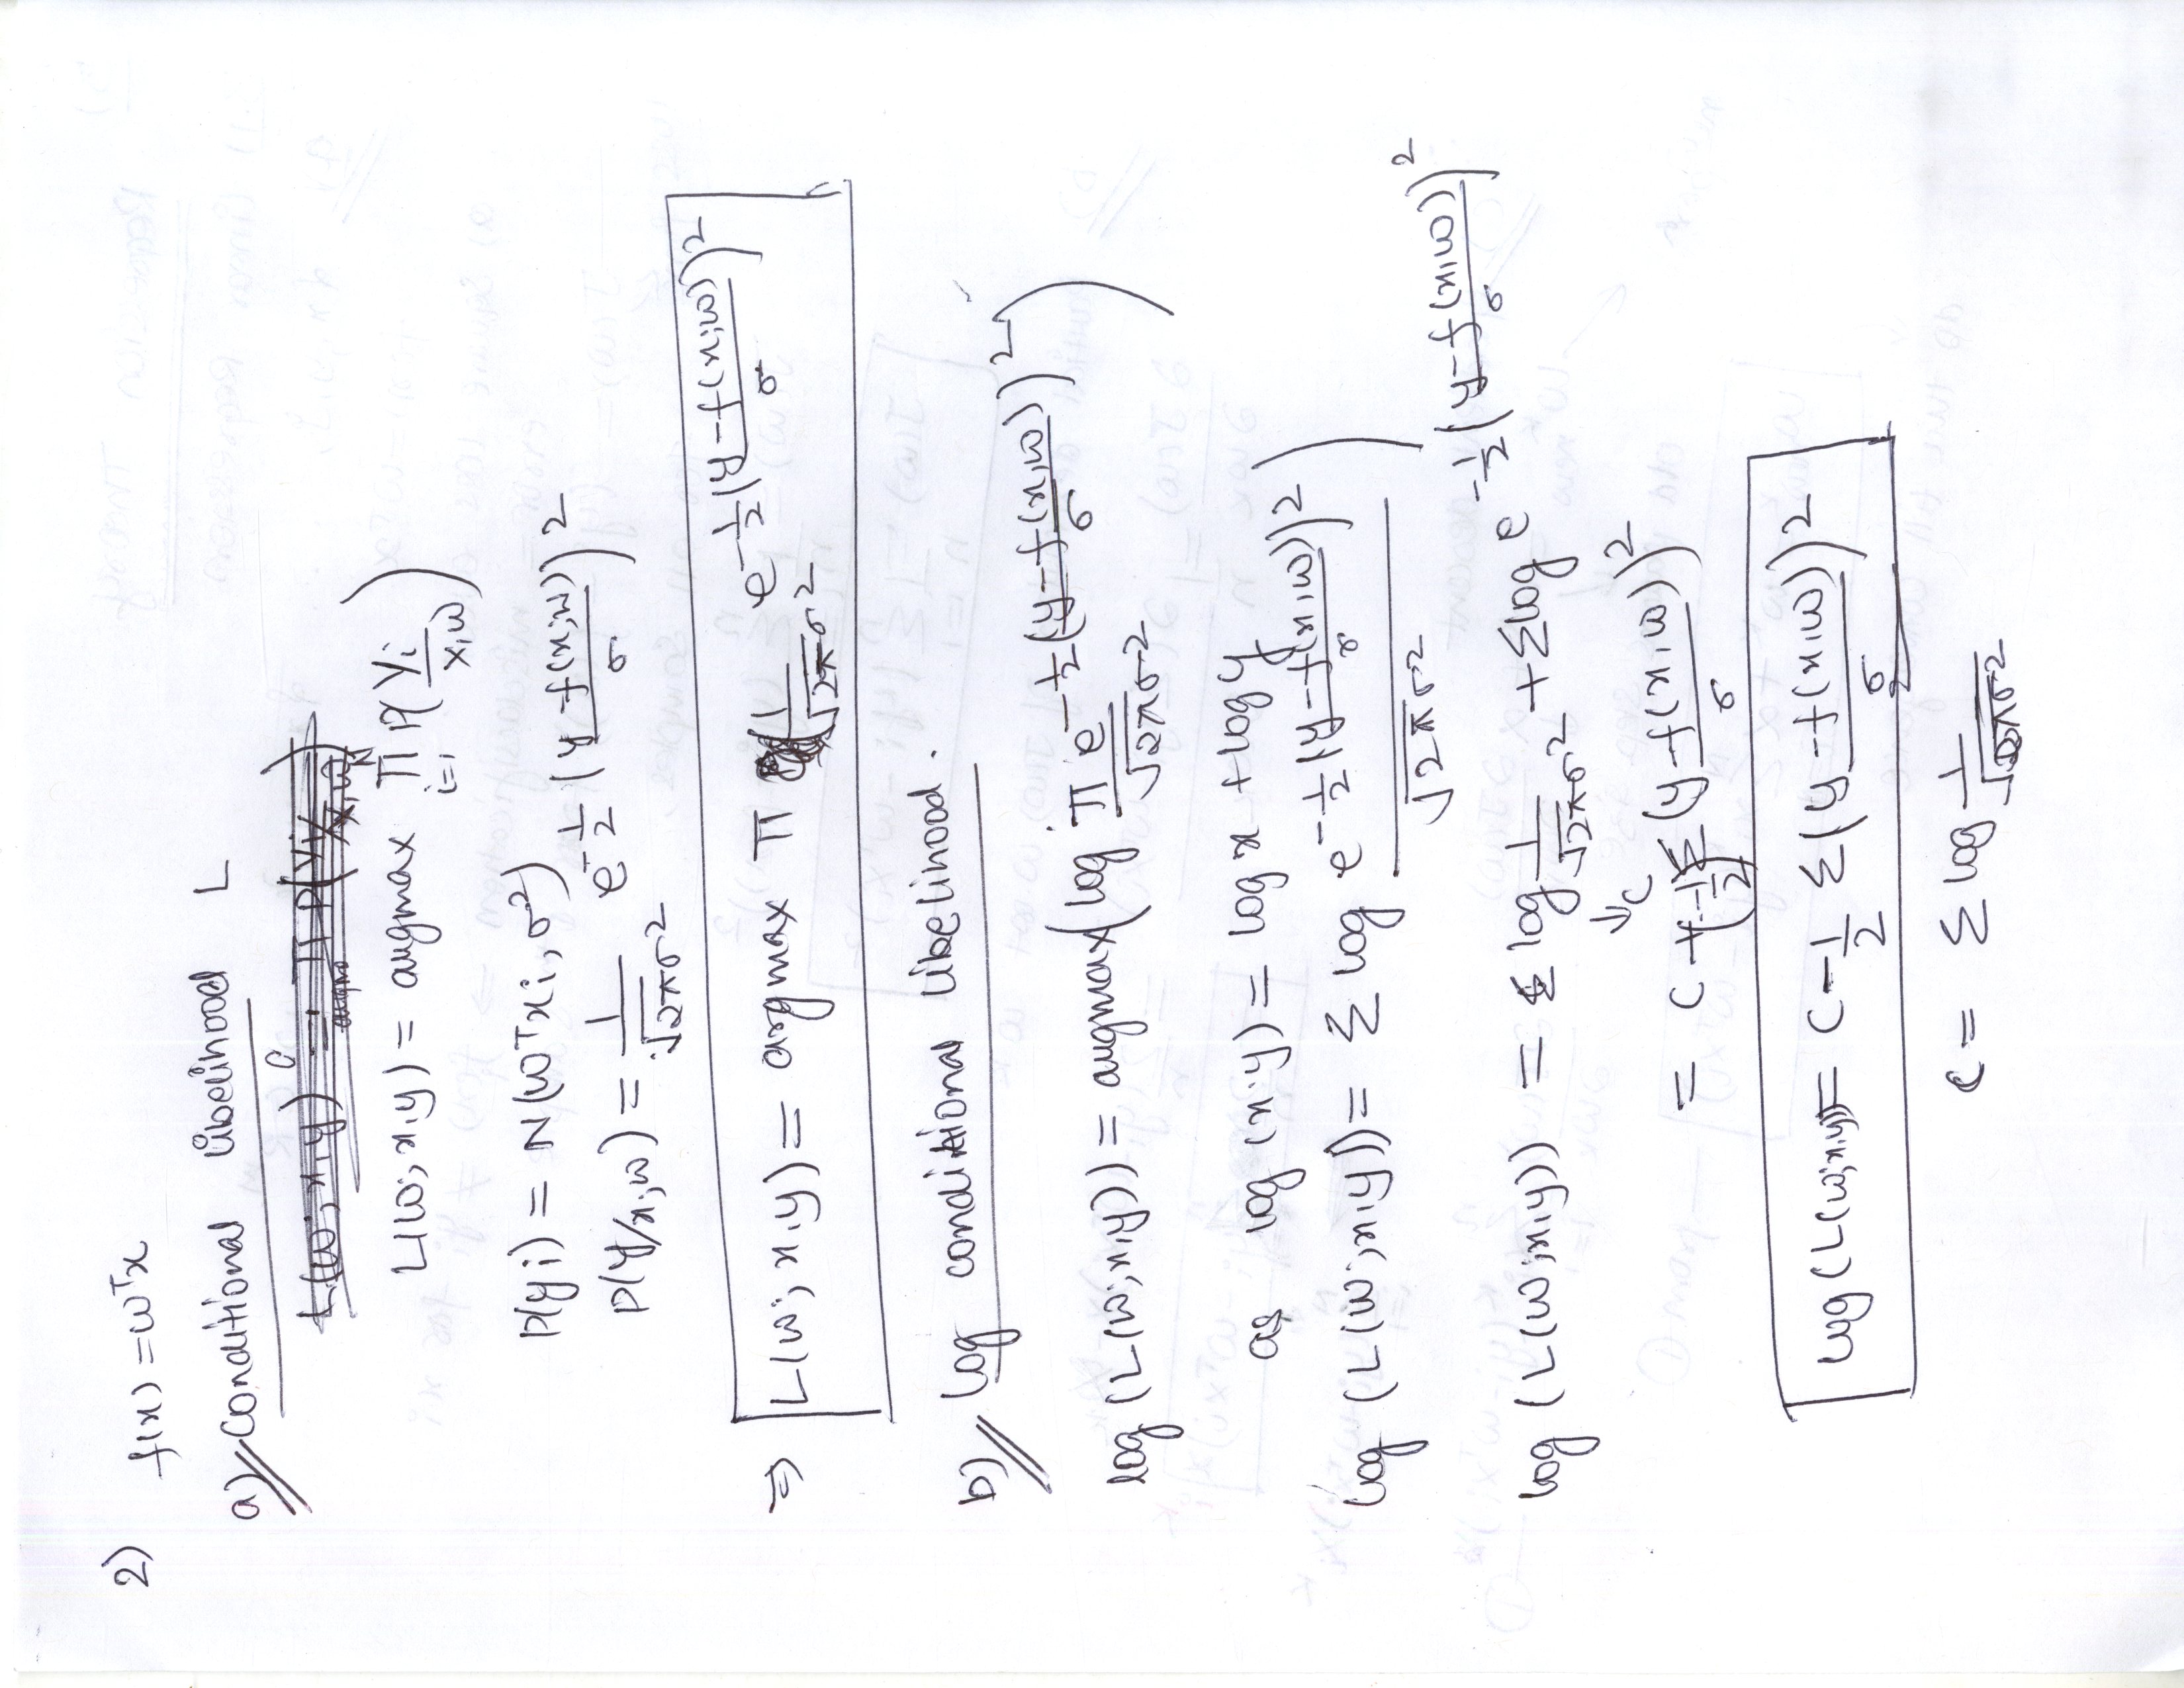 2) f(x) = wᵀx
a) Conditional likelihood L
L(w; x,y) = argmax π P(yi/x,w)
i=1
P(yi) = N(wᵀxi, σ²)
P(y/x,w) = 1/√2πσ² e^-1/2 (y-f(x;w)/σ)²
⇒ L(w; x,y) = argmax π 1/√2πσ² e^-1/2 (y-f(x;w)/σ)²
b) log conditional likelihood.
log (L(w; x,y)) = argmax (log π e^-1/2 (y-f(x,w)/σ)² / √2πσ²)
as log (x,y) = log x + log y
log (L(w; x,y)) = Σ log e^-1/2 (y-f(x,w)/σ)² / √2πσ²
log (L(w; x,y)) = Σ log 1/√2πσ² + Σ log e^-1/2 (y-f(x,w)/σ)²
⇓c
= C + (-1/2) Σ (y-f(x,w)/σ)²
log (L(w; x,y)) = C - 1/2 Σ (y-f(x,w)/σ)²
C = Σ log 1/√2πσ²